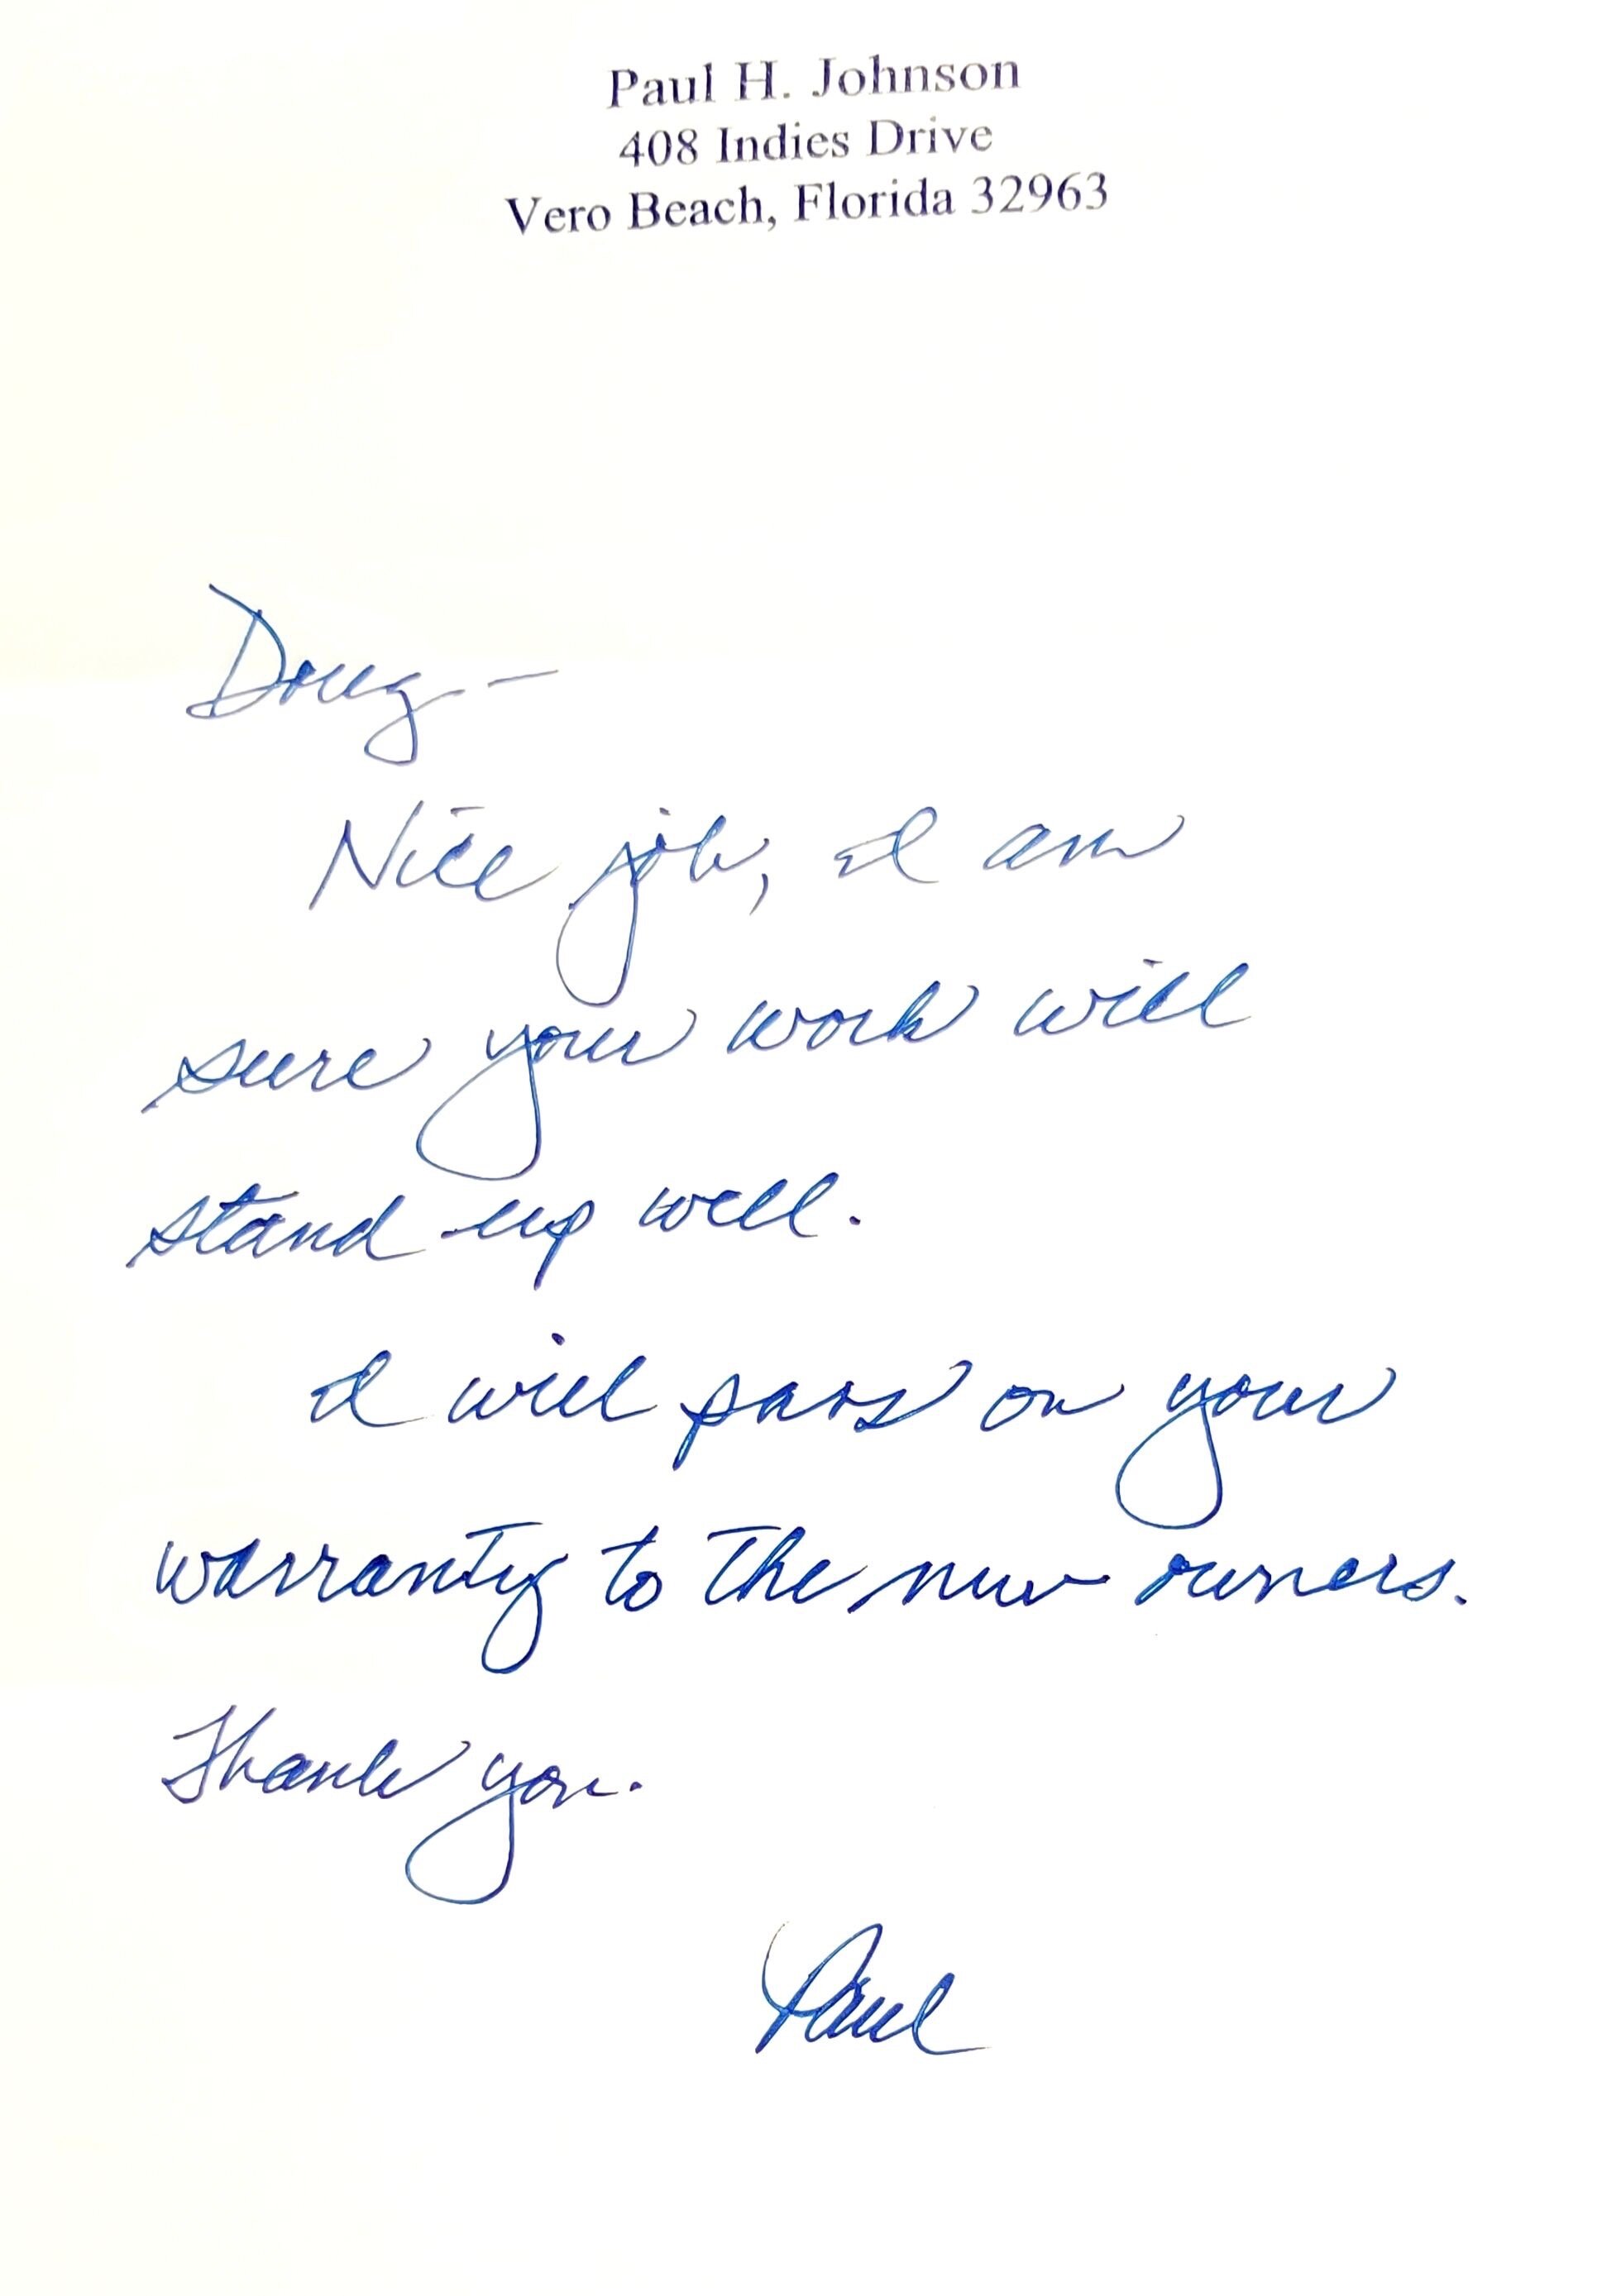 Paul H. Johnson
408 Indies Drive
Vero Beach, Florida 32963
Doug –
Nice job, I am
sure your work will
stand up well.
I will pass on your
warranty to the new owners.
Thank you.
Paul